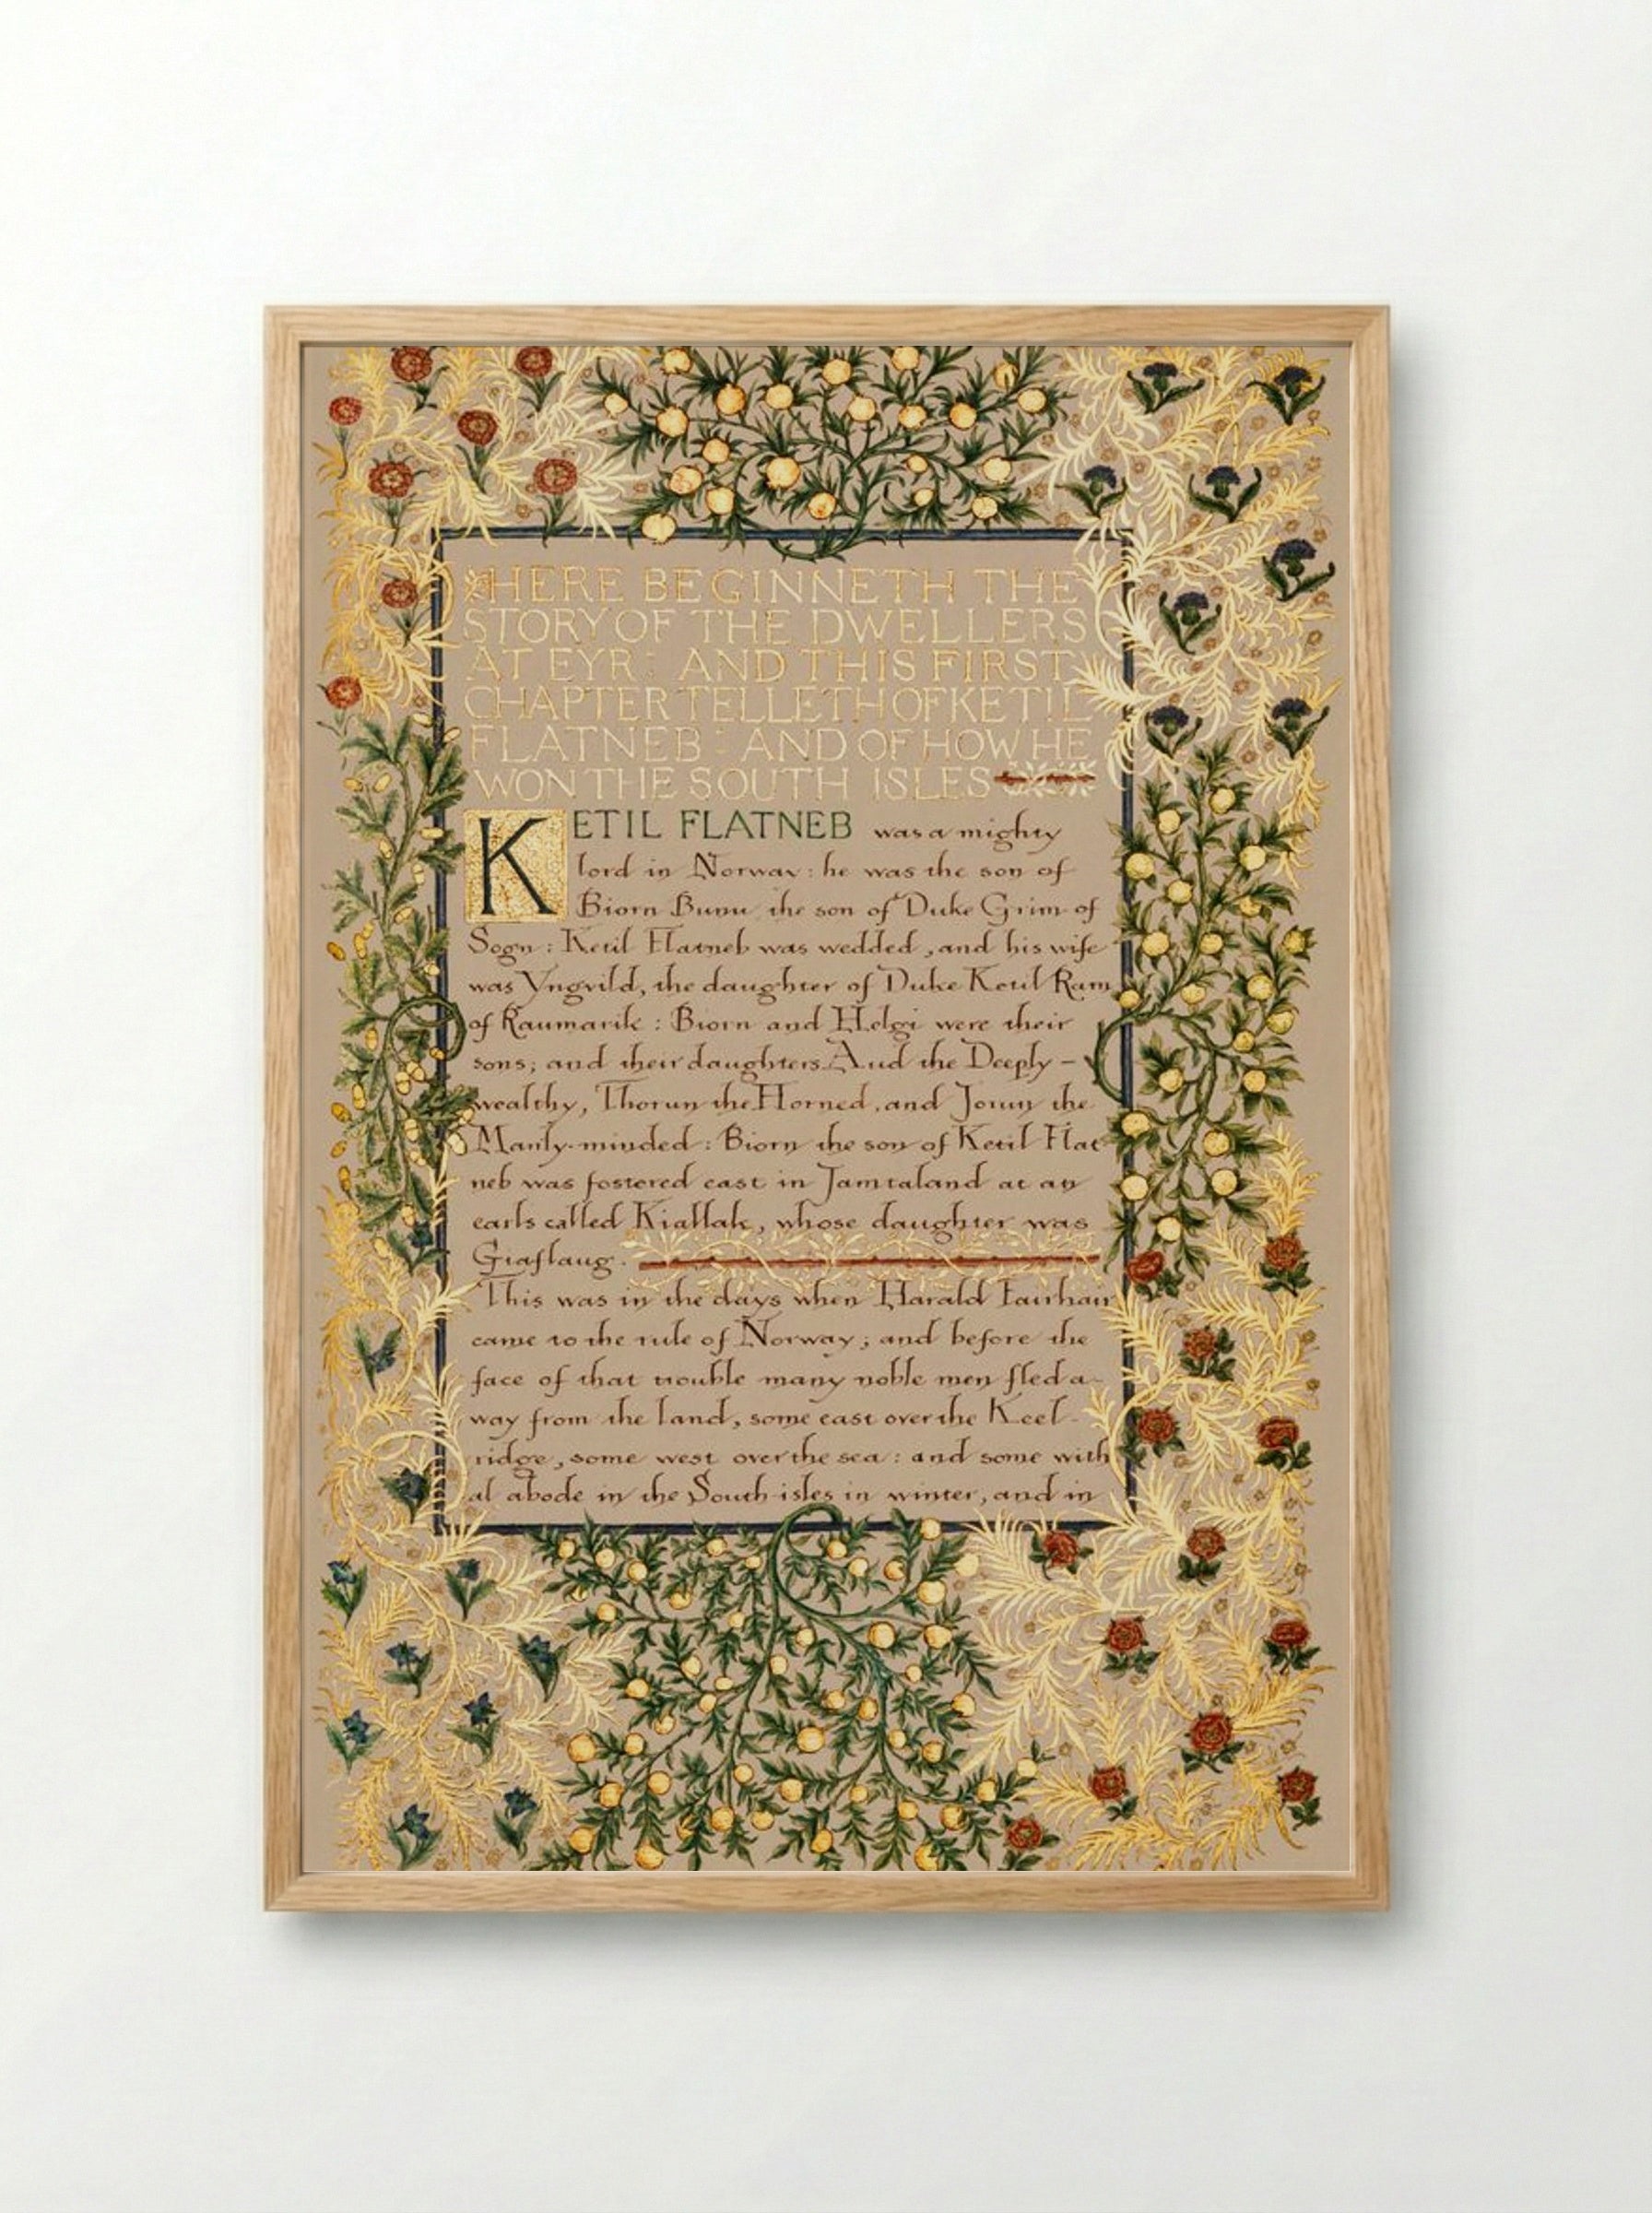 HERE BEGINNETH THE
STORY OF THE DWELLERS
AT EYR : AND THIS FIRST
CHAPTER TELLETH OF KETIL
FLATNEB : AND OF HOW HE
WON THE SOUTH ISLES
KETIL FLATNEB was a mighty
lord in Norway : he was the son of
Biorn Bunu the son of Duke Grim of
Sogn : Ketil Flatneb was wedded, and his wife
was Yngvild, the daughter of Duke Ketil Ram
of Raumarik : Biorn and Helgi were their
sons; and their daughters Aud the Deeply-
wealthy, Thorun the Horned, and Jorun the
Manly-minded : Biorn the son of Ketil Flat
neb was fostered east in Jamtaland at an
earls called Kiallak, whose daughter was
Giaflaug.
This was in the days when Harald Fairhair
came to the rule of Norway; and before the
face of that trouble many noble men fled a-
way from the land, some east over the Keel-
ridge, some west over the sea : and some with
al abode in the South-isles in winter, and in